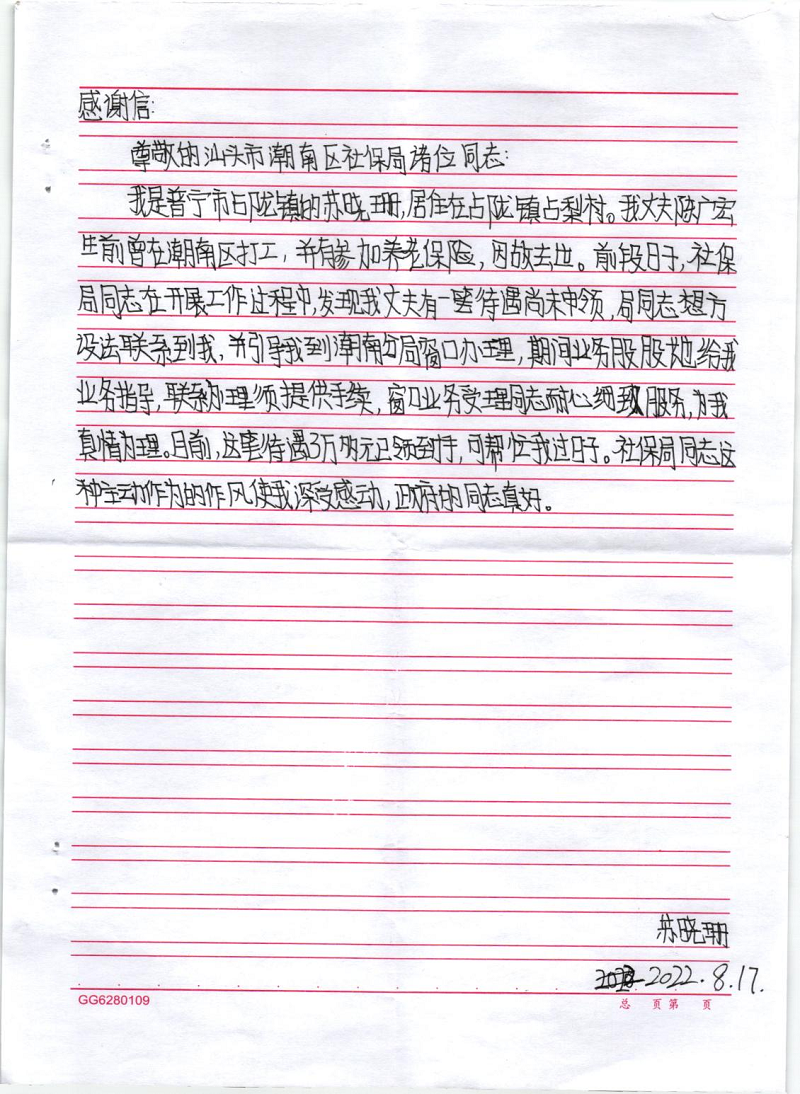 感谢信:
尊敬的汕头市潮南区社保局诸位同志:
我是普宁市占陇镇的苏晓珊,居住在占陇镇占梨村。我丈夫陈广宏
生前曾在潮南区打工,并有参加养老保险,因故去世。前段日子,社保
局同志在开展工作过程中,发现我丈夫有一笔待遇尚未申领,局同志想方
设法联系到我,并引导我到潮南分局窗口办理,期间业务股股长也给我
业务指导,联系办理须提供手续,窗口业务受理同志耐心细致服务,为我
真情办理。日前,这笔待遇3万块元已领到手,可帮忙我过日子。社保局同志这
种主动作为的作风使我深受感动,政府的同志真好。
苏晓珊
2022.8.17.
GG6280109
总 页 第 页